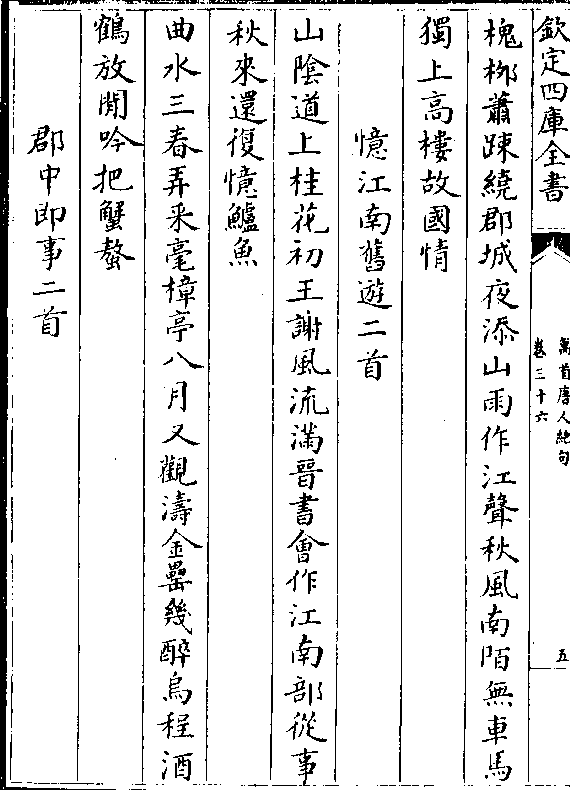 欽定四庫全書
萬首唐人絶句
卷三十六
五
槐栁蕭踈繞郡城夜添山雨作江聲秋風南陌無車馬
獨上高樓故國情
憶江南舊遊二首
山隂道上桂花初王謝風流滿晉書㑹作江南部從事
秋來還復憶鱸魚
曲水三春弄采毫樟亭八月又觀濤金罍幾醉烏程酒
鶴放閒吟把蟹螯
郡中即事二首